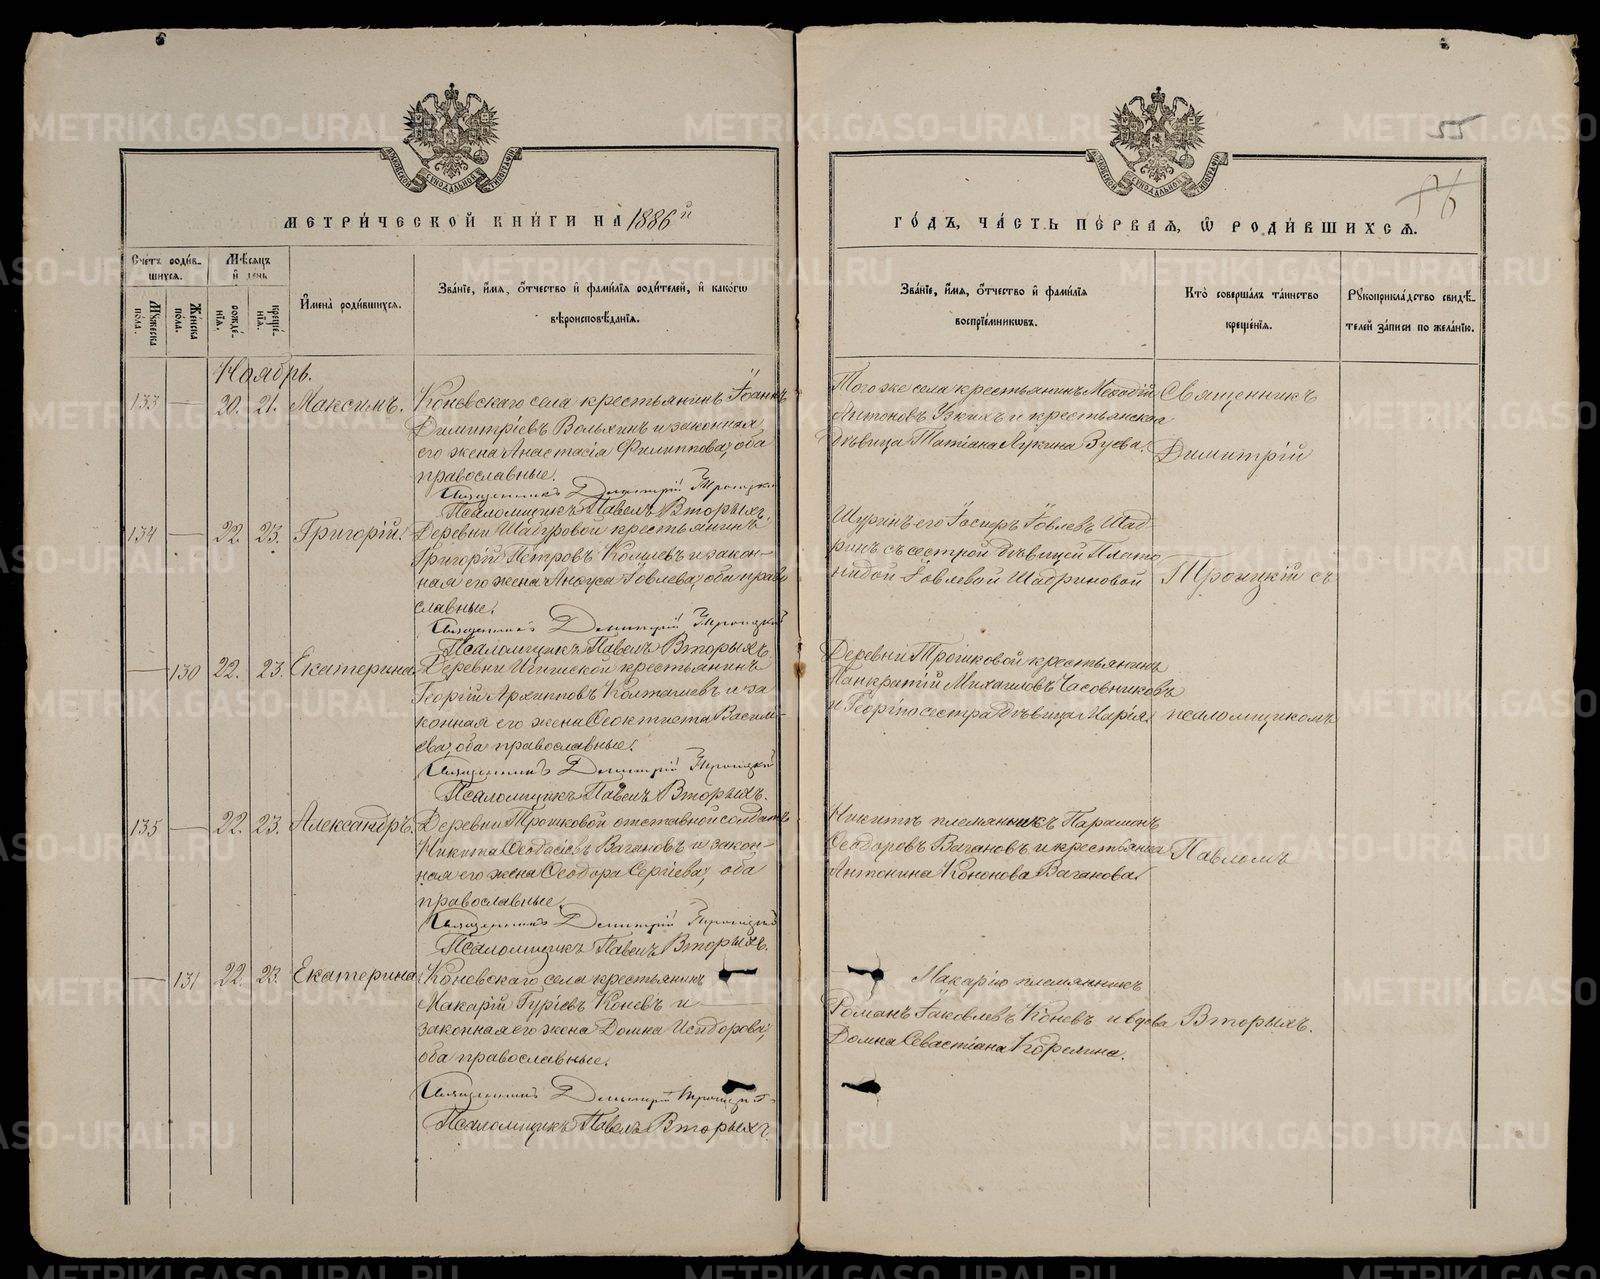 МОСКОВСКОЙ СУНОДАЛЬНОЙ ТИПОГРАФІИ
МЕТРИ́ЧЕСКОЙ КНИ́ГИ НА 1886й
Счетъ роди́вшихся.
Мѣ́сяцъ и́ день
И́мена̀ роди́вшихся.
Зва́нїе, и́мя, ѻ́тчество и́ фами́лїя роди́телей, и́ како́гѡ
вѣроисповѣ́данїя.
Мꙋжеска по́ла.
Же́нска по́ла.
рожде́нїя.
креще́нїя.
Ноябрь.
133 — 20. 21. Максимъ.
Коневскаго села крестьянинъ Іоаннъ
Димитріевъ Вольхинъ и законная
его жена Анастасія Филиппова, оба
православные.
Священникъ Димитрій Троицкій
Псаломщикъ Павелъ Вторыхъ.
134 — 22. 23. Григорій.
Деревни Шабуровой крестьянинъ
Григорій Петровъ и закон-
ная его жена Анкуса Іовлева, оба право
славные.
Священникъ Димитрій Троицкій
Псаломщикъ Павелъ Вторыхъ
— 130 22. 23. Екатерина.
Деревни крестьянинъ
Георгій Архипповъ Колташевъ и за
конная его жена Ѳеоктиста Василь-
ева, оба православные.
Священникъ Димитрій Троицкій
Псаломщикъ Павелъ Вторыхъ.
135 — 22. 23. Александръ.
Деревни Трошковой отставной солдатъ
Никита Ѳеодосіевъ Вагановъ и закон-
ная его жена Ѳеодора Сергіева, оба
православные.
Священникъ Димитрій Троицкій
Псаломщикъ Павелъ Вторыхъ.
— 131 22. 23. Екатерина
Коневскаго села крестьянинъ
Макарій Гуріевъ Коневъ и
законная его жена Домна Исидорова,
оба православные.
Священникъ Димитрій Троицкій
Псаломщикъ Павелъ Вторыхъ.
55
56
МОСКОВСКОЙ СУНОДАЛЬНОЙ ТИПОГРАФІИ
ГО́ДЪ, ЧА́СТЬ ПЕ́РВАѦ, Ѡ҆ РОДИ́ВШИХСѦ.
Зва́нїе, и́мя, ѻ́тчество и́ фами́лїя
воспрїе́мникѡвъ.
Кто̀ соверша́лъ та́инство
креще́нїя.
Рꙋкоприкла́дство свидѣ́-
телей за́писи по жела́нїю.
Того же села крестьянинъ Меѳодій
Антоновъ Узкихъ и крестьянская
дѣвица Татіана Лукина Зуева.
Священникъ
Димитрій
Шуринъ его Іосифъ Іовлевъ Шад
ринъ съ сестрой дѣвицей Плато
нидой Іовлевой Шадриновой
Троицкій съ
Деревни Трошковой крестьянинъ
Панкратій Михаиловъ Часовниковъ
и Георгію сестра дѣвица Марія.
псаломщикомъ
Никитѣ племянникъ Парамонъ
Ѳеодоровъ Вагановъ и крестьянка
Антонина Кононова Ваганова.
Павломъ
Макарію племянникъ
Романъ Іаковлевъ Коневъ и вдова
Домна Севастіана Корелина.
Вторыхъ.
METRIKI.GASO-URAL.RU